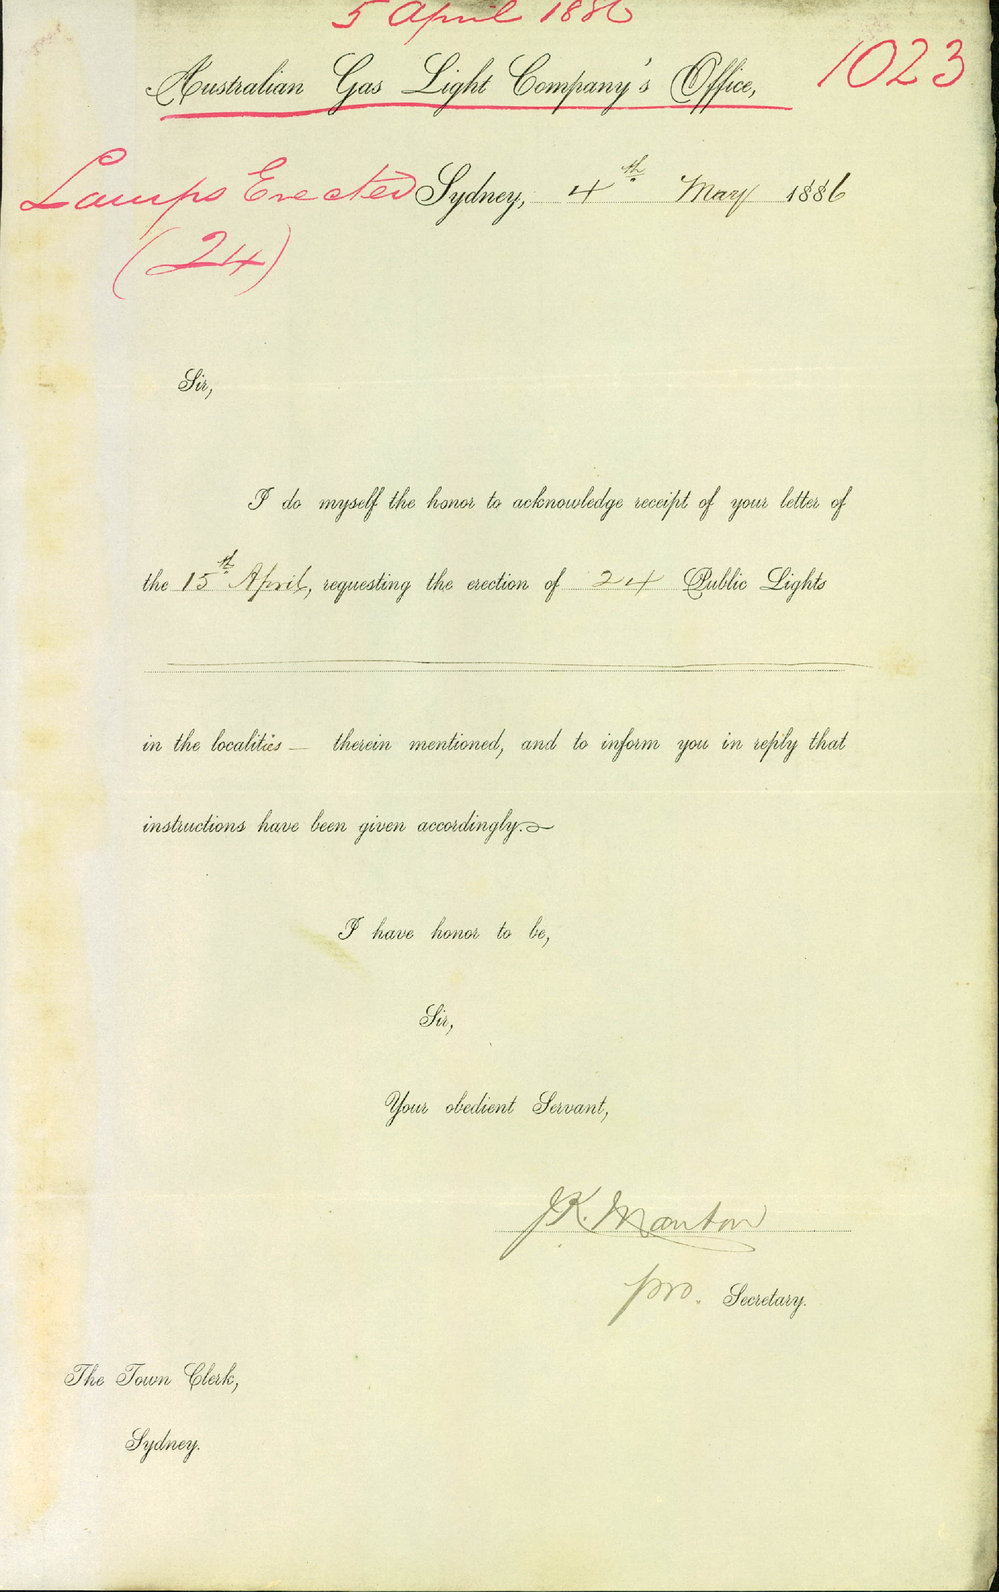 5 April 1886
1023
Australian Gas Light Company's Office,
Lamps Erected
(24)
Sydney, 4th May 1886
Sir,
I do myself the honor to acknowledge receipt of your letter of
the 15th April, requesting the erection of 24 Public Lights
in the localities — therein mentioned, and to inform you in reply that
instructions have been given accordingly.
I have honor to be,
Sir,
Your obedient Servant,
J.K. Manton
pro. Secretary.
The Town Clerk,
Sydney.